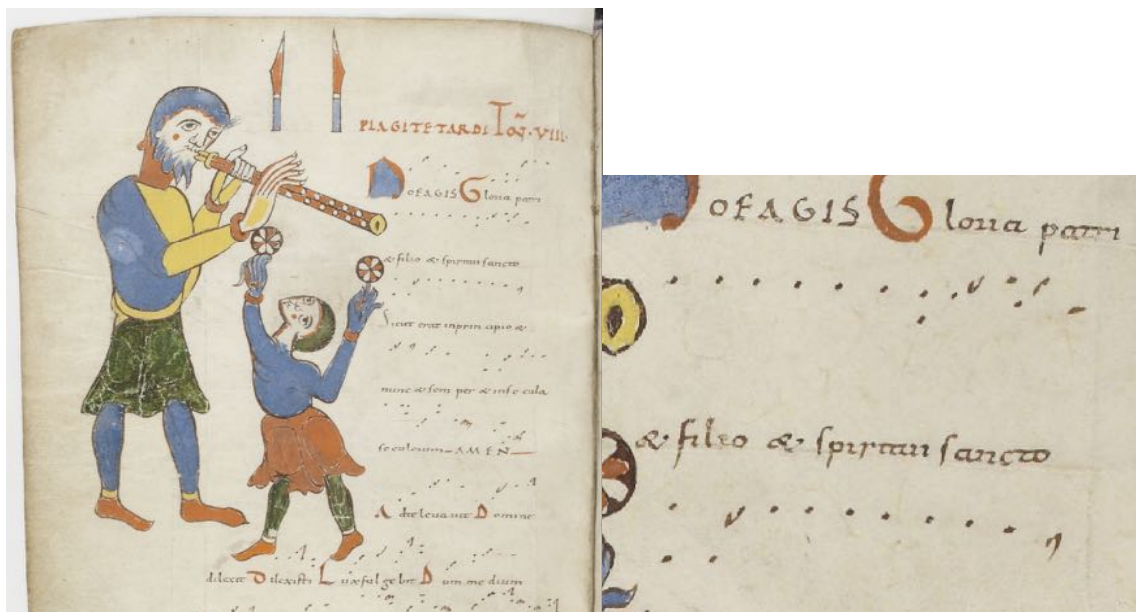 PLAGI TETARDI TOÑ·VIII·
NOEAGIS Gloria patri
& filio & spiritui sancto
Sicut erat in principio &
nunc & sem per & in se cula
seculorum AMEN
Ad te levavit Domine
dilexit Dilexisti Lux ful ge bit Dum me dium
OEAGIS Gloria patri
& filio & spiritui sancto